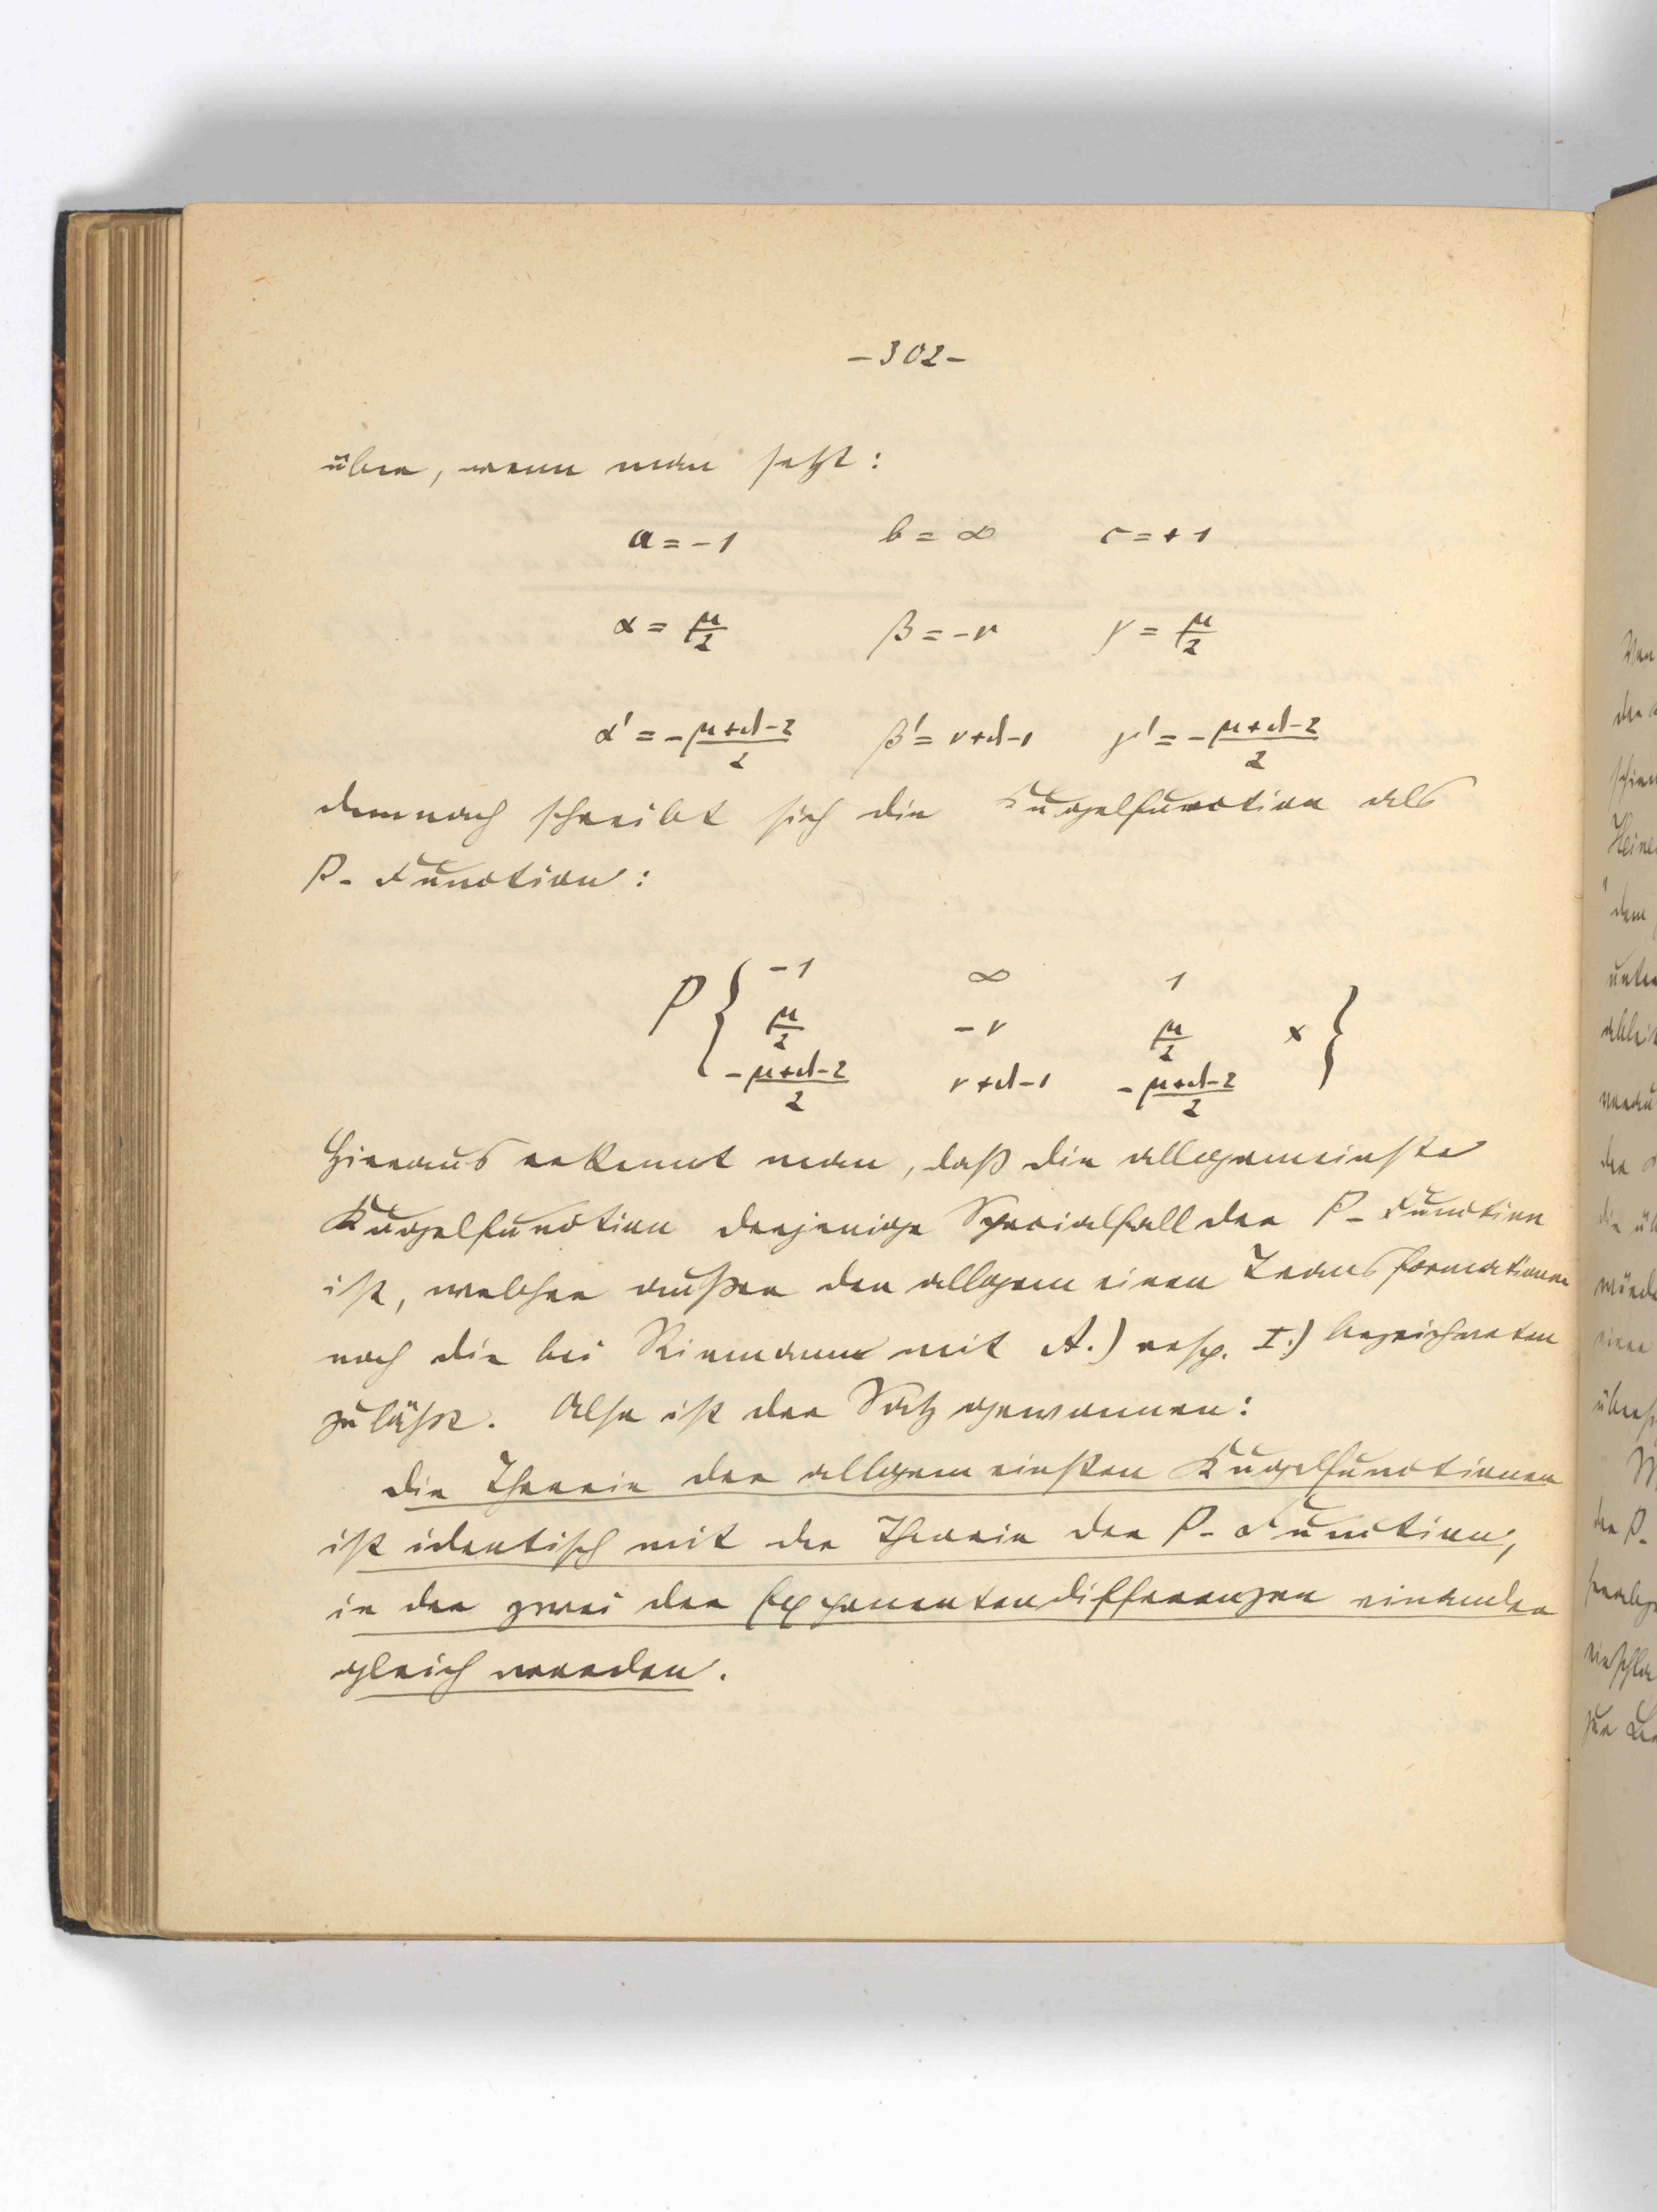 -302-
über, wenn man setzt:
a = -1 b = ∞ c = +1
α = μ/2 β = -ν γ = μ/2
α' = -(μ+d-2)/2 β' = ν+d-1 γ' = -(μ+d-2)/2
demnach schreibt sich die Kugelfunction als
P-Function:
P { -1 ∞ 1
μ/2 -ν μ/2 x }
-(μ+d-2)/2 ν+d-1 -(μ+d-2)/2
Hieraus erkennt man, daß die allgemeinste
Kugelfunction derjenige Specialfall der P-Function
ist, welcher außer den allgemeinen Transformationen
noch die bei Riemann mit A.) resp. I.) bezeichneten
zuläßt. Also ist der Satz gewonnen:
die Theorie der allgemeinsten Kugelfunctionen
ist identisch mit der Theorie der P-Function,
in der zwei der Exponentendifferenzen einander
gleich werden.